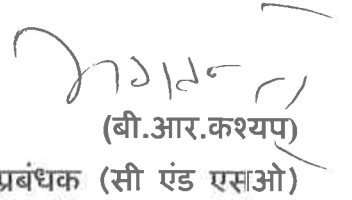 (बी.आर.कश्यप)
प्रबंधक (सी एंड एसओ)